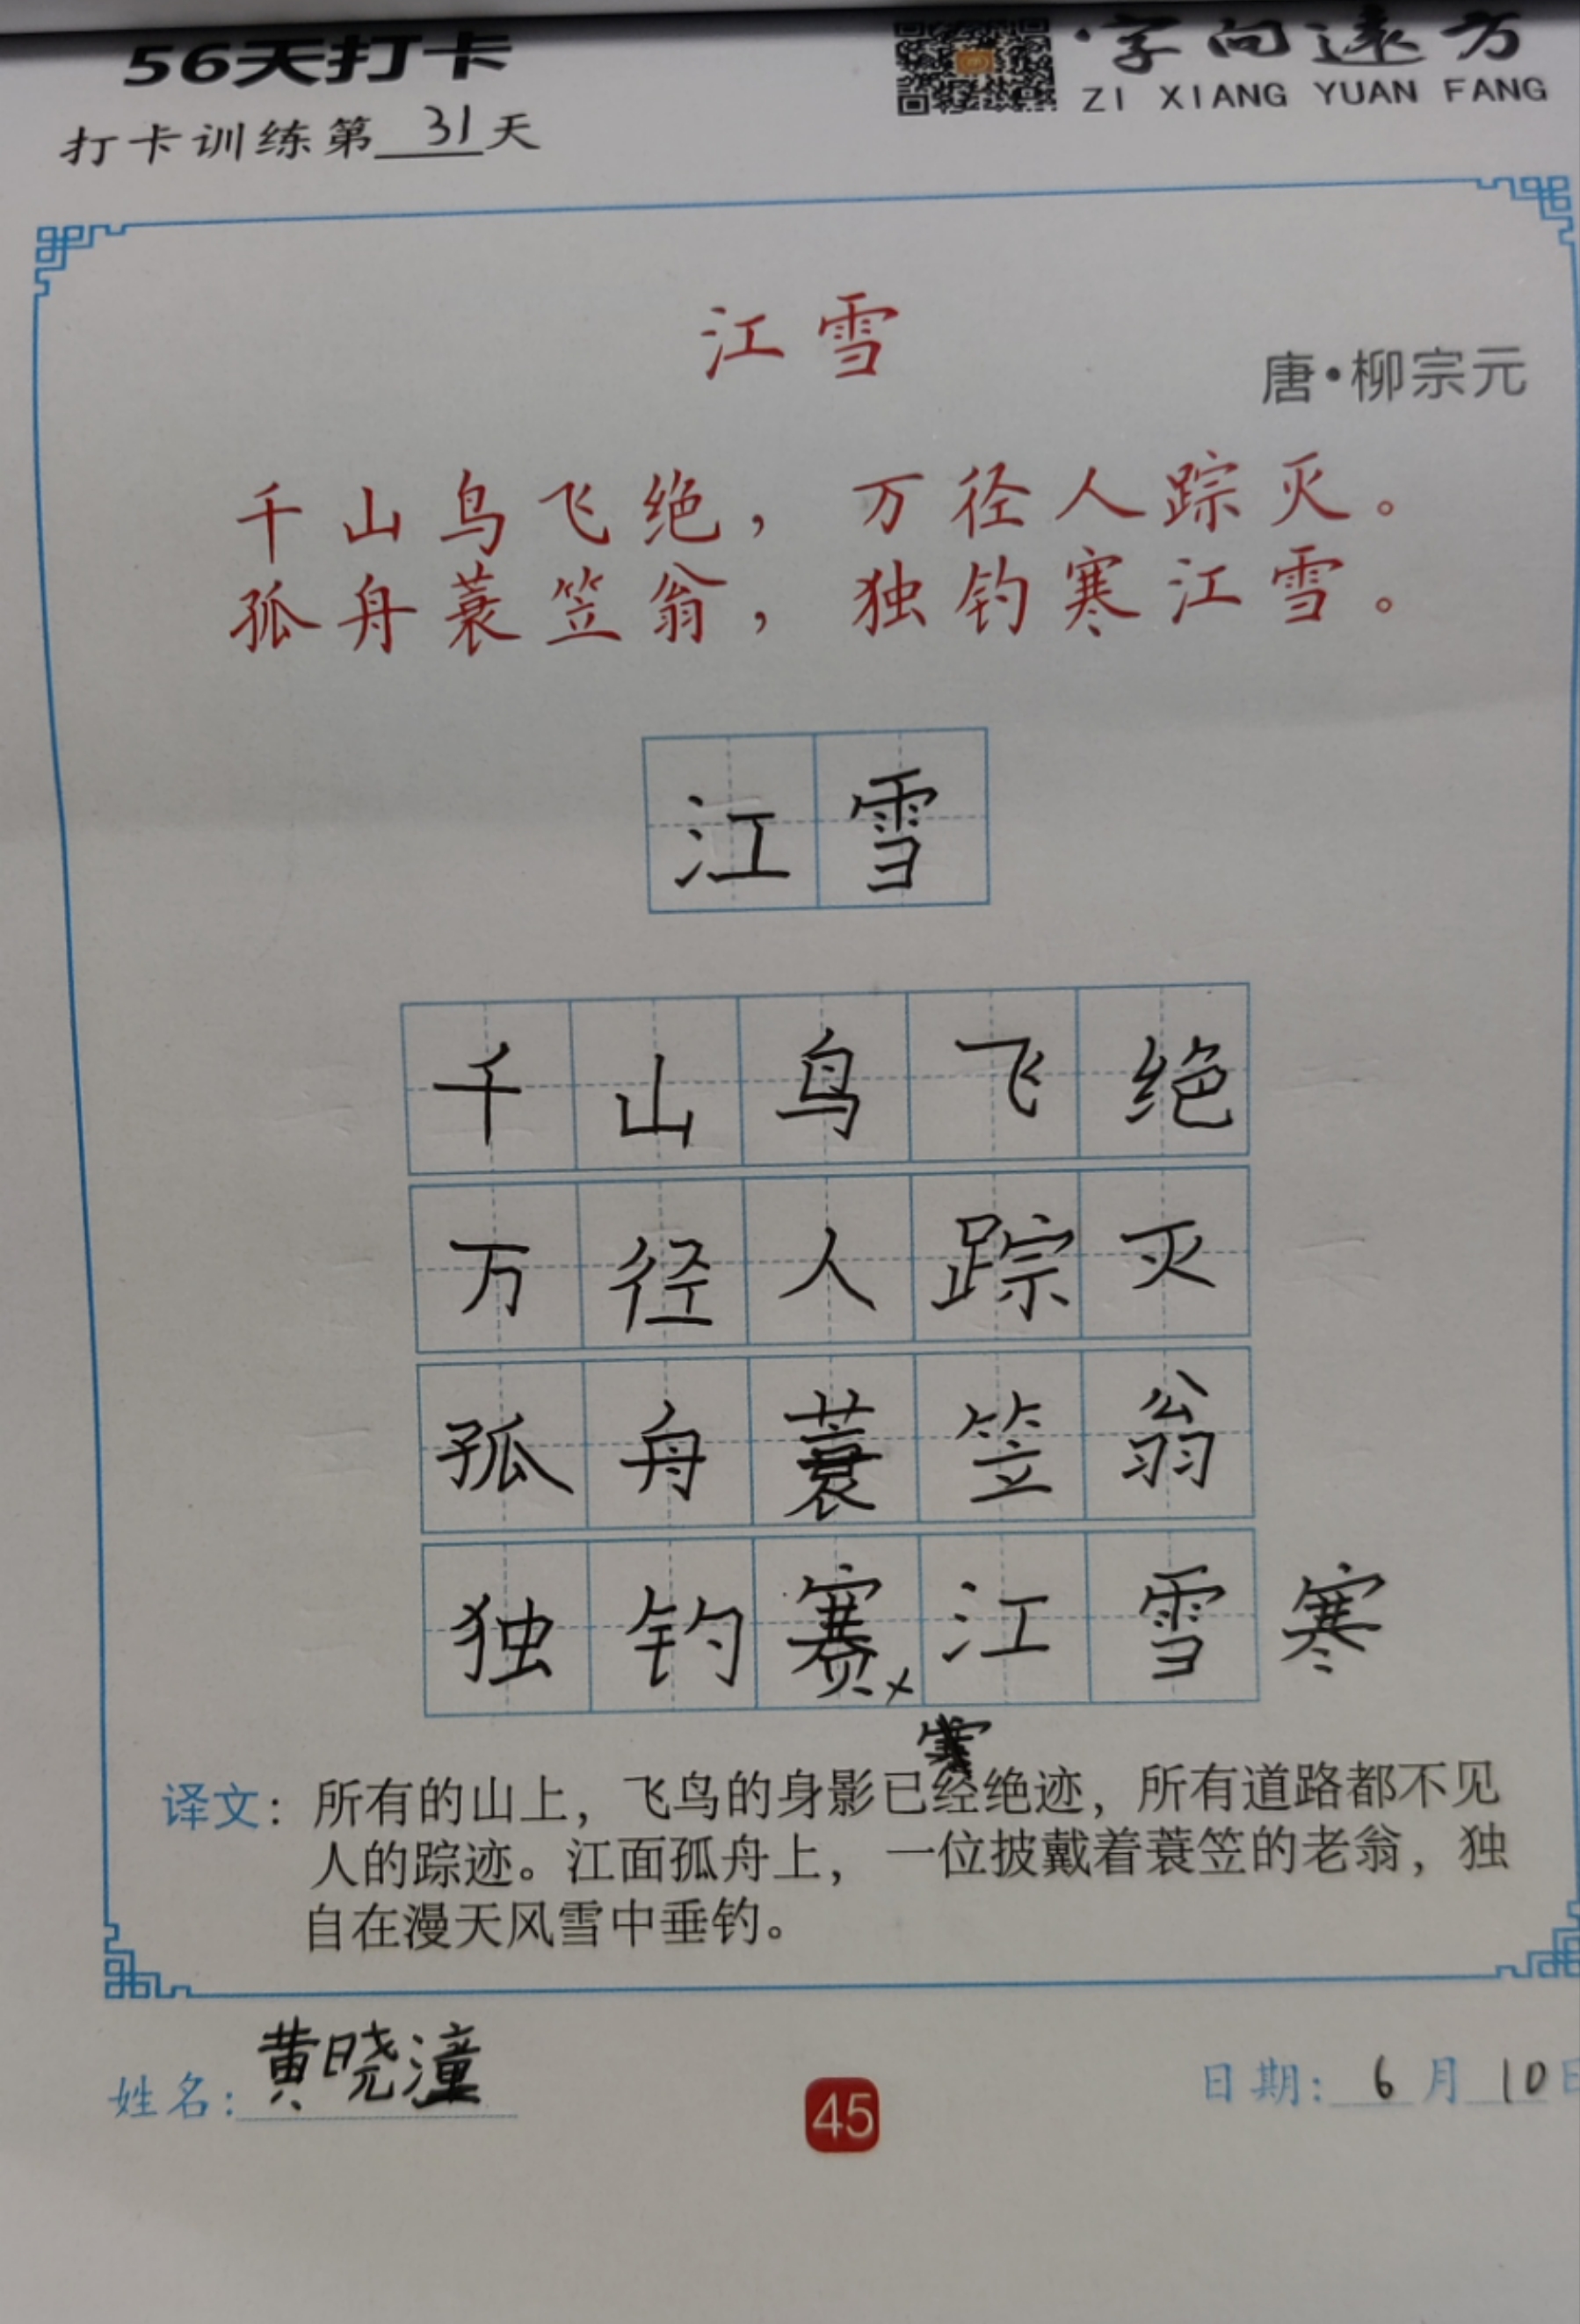 56天打卡
·字向远方
ZI XIANG YUAN FANG
打卡训练第31天
江雪
唐·柳宗元
千山鸟飞绝，万径人踪灭。
孤舟蓑笠翁，独钓寒江雪。
江雪
千山鸟飞绝
万径人踪灭
孤舟蓑笠翁
独钓赛×江雪 寒
译文：所有的山上，飞鸟的身影已经绝迹，所有道路都不见
人的踪迹。江面孤舟上，一位披戴着蓑笠的老翁，独
自在漫天风雪中垂钓。
姓名：黄晓潼
45
日期：6月10日